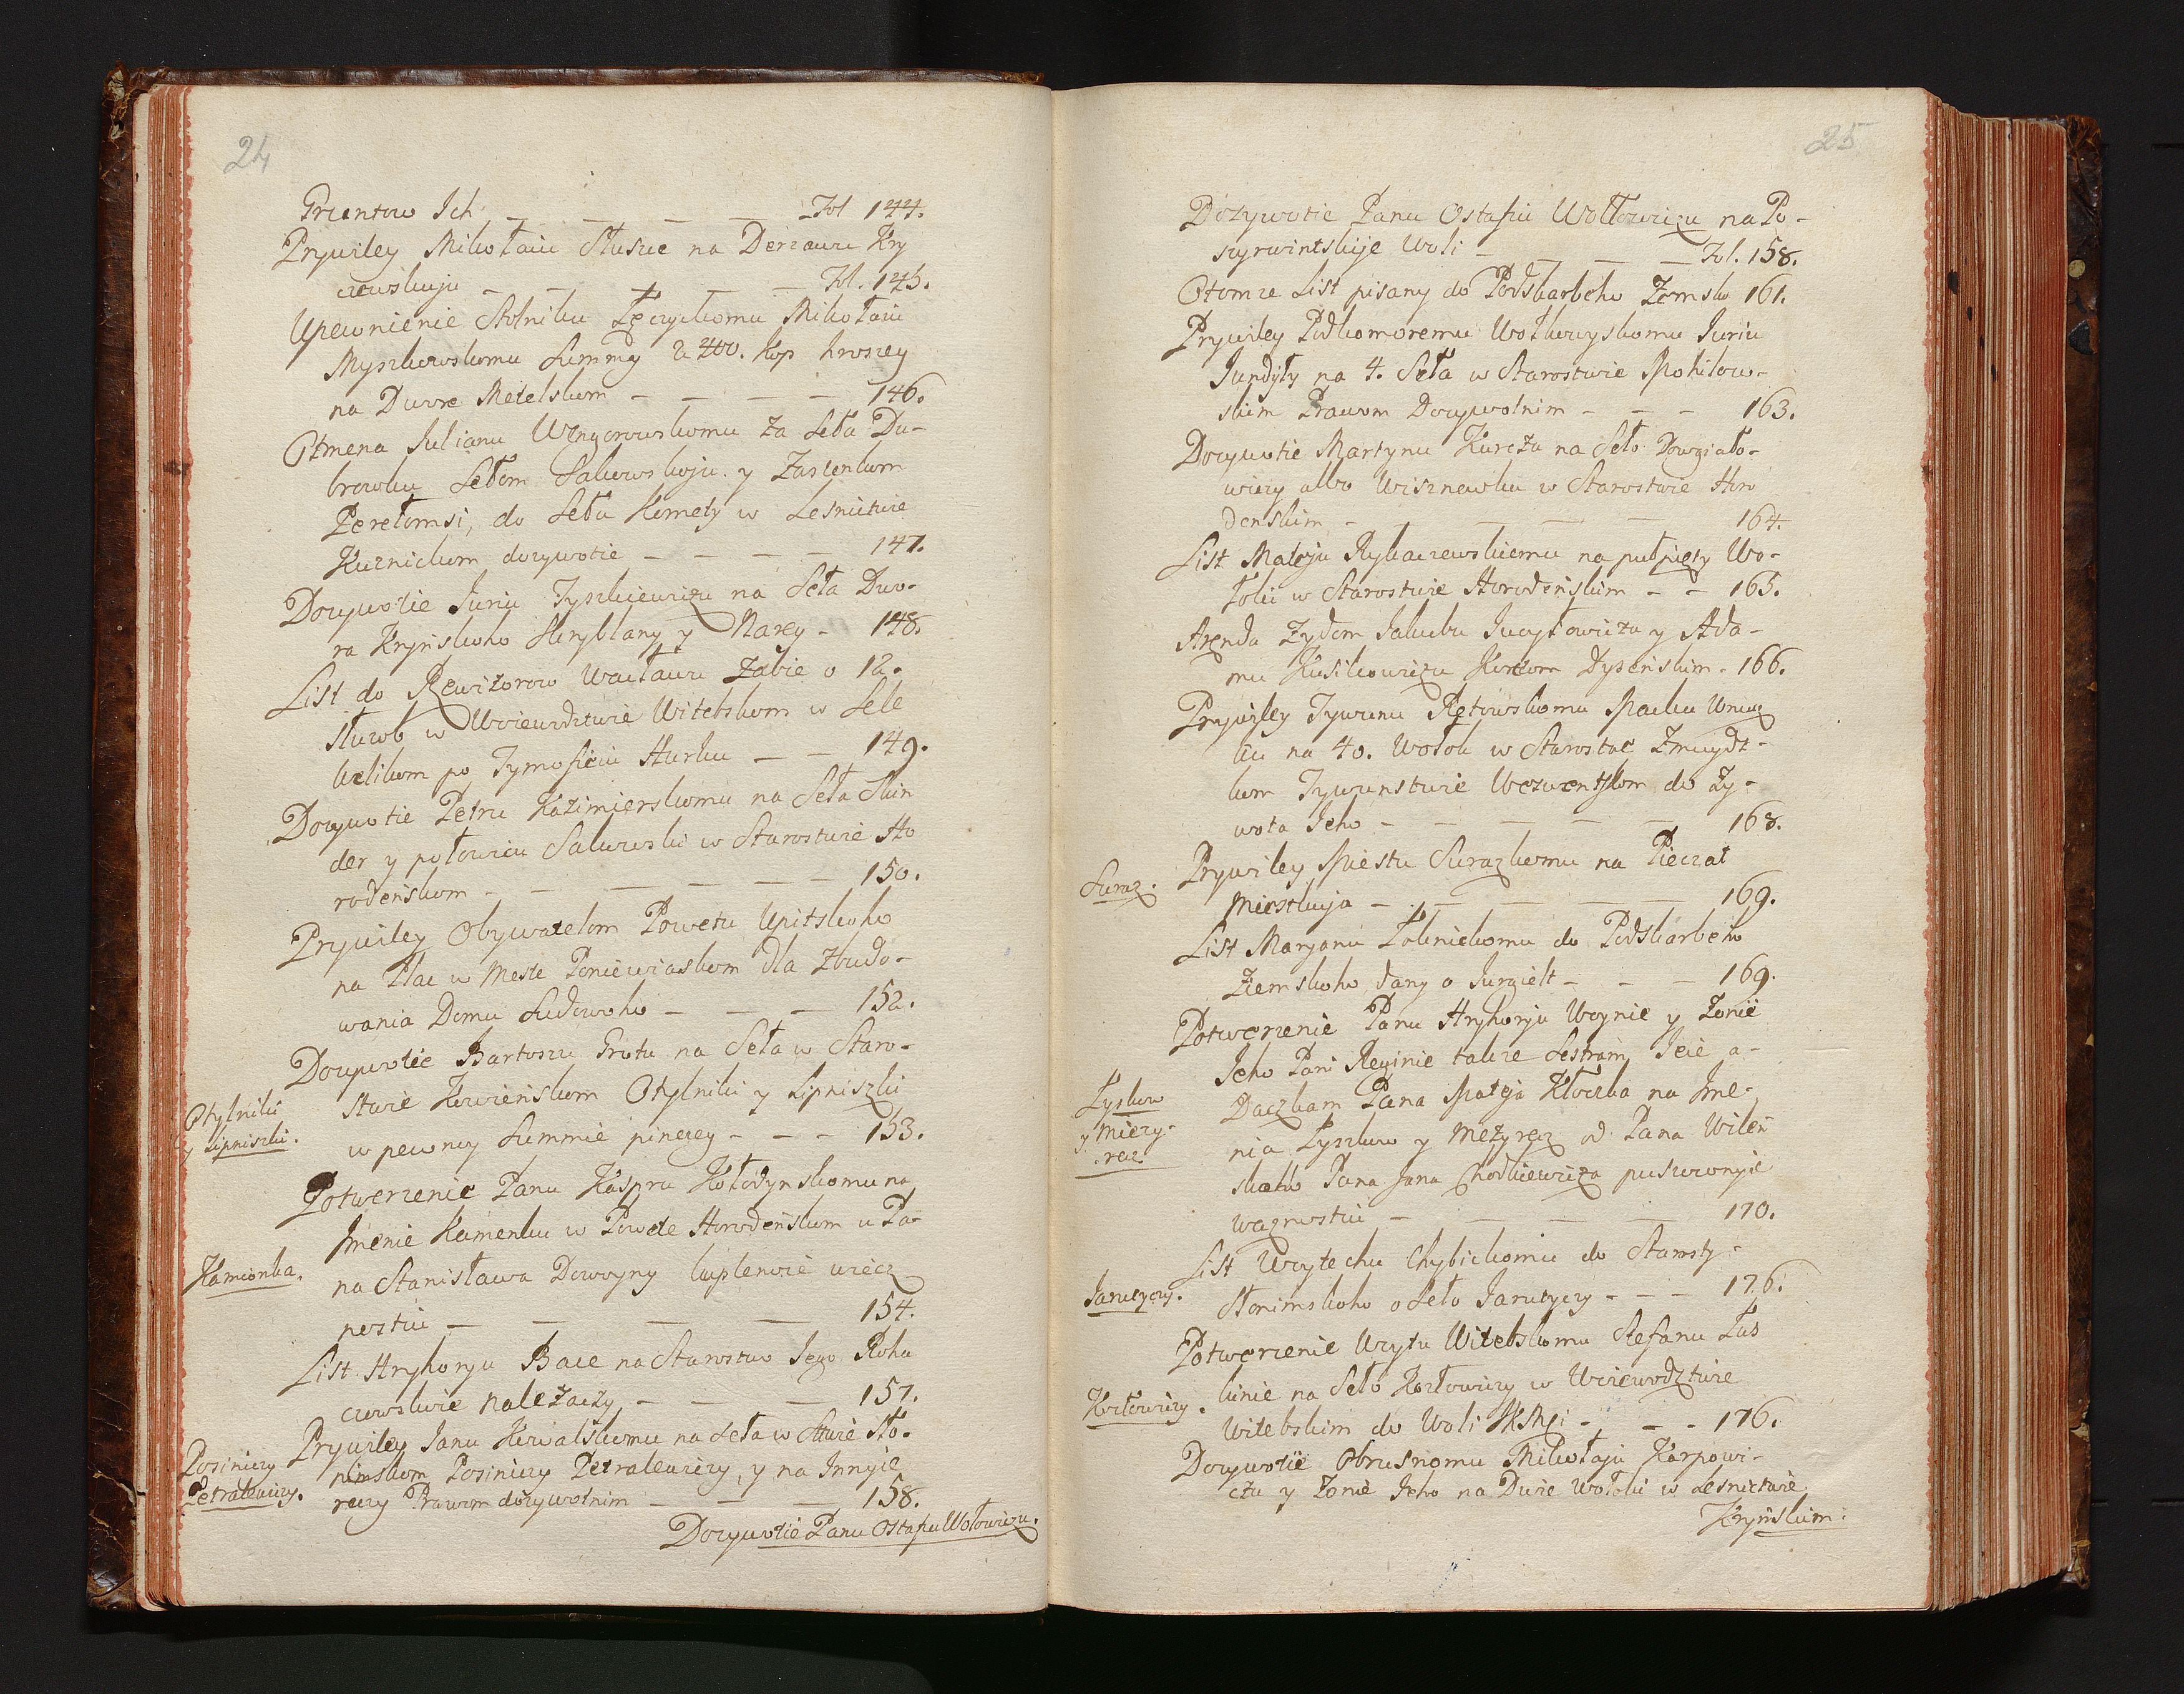 24
Gruntow Ich — — — — Fol 144.
Prywiley Mikołaiu Słusce na Derzawu Kry
czewskuju — — — — — Fol. 145.
Upewnienie Stolniku Łęczyckomu Mikołaiu
Myszkowskomu Summy 2400. Kop hroszey
na Dwore Metelskom — — — — 146.
Otmena Julianu Węgorowskomu za Seła Du-
browku Sełom Sakowskoju y Zascenkom
Perełomsi, do Seła Komety w Lesnictwie
Kuznickom dozywotie — — — — 147.
Dozywotie Juriu Tyszkiewiczu na Seła Dwo-
ra Krynskoho Skryblany y Narey - 148.
List do Rewizorow Wacławu Zabie o 12.
słuzb w Woiewodztwie Witebskom w Sele
Welikom po Tymofieiu Hurku — — 149.
Dozywotie Petru Kazimierskomu na Seła Skin
der y połowicu Sakowski w Starostwie Ho
rodenskom - — — — — — 150.
Prywiley Obywatelom Powetu Upitskoho
na Plac w Meste Poniewiaskom dla Zbudo-
wania Domu Sudowoho — — — 152.
Dozywotie Bartoszu Grotu na Seła w Staro-
stwie Kowienskom Otylniki y Lipniszki
w pewney Summie pinezey - — - 153.
Otylniki
y Lipniszki.
Potwerzenie Panu Kaspru Kołodynskomu na
Jmenie Kamenku w Powete Horodenskom u Pa-
na Stanisława Dowoyny kuplenoie wiecz
nostiu — — — — — 154.
Kamionka.
List Hryhoryu Bace na Starostwo Jego Roha
czewskoie należaczy — — — 157.
Prywiley Janu Kowalskomu na Seła w Stwie Sło-
nimskom Posiniczy Petralewiczy, y na Jnnyie
reczy Prawom dozywotnim — — — 158.
Posiniczy
Petralewiczy.
Dozywotie Panu Ostafiu Wołowiczu.
25
Dozywotie Panu Ostafiu Wołłowiczu na Po-
szyrwintskije Woli — — — Fol. 158.
Otomze List pisany do Podskarbeho Zemsko 161.
Prywiley Podkomoremu Wołkowyskomu Juriu
Jundyły na 4. Seła w Starostwie Mohilow-
skim Prawom Dozywotnim - — - 163.
Dozywotie Martynu Kurczu na Seło Dowgiało-
wiczy albo Wisznewku w Starostwie Horo
denskim — — — — 164.
List Mateju Rybaczewskiemu na puł piety Wo-
łoki w Starostwie Horodenskim - — 165.
Arenda Zydom Jakubu Jucyłowicza y Ada-
mu Kusikowiczu Korczom Dysenskim - 166.
Prywiley Tywunu Retowskomu Macku Wnucz
ku na 40. Wołok w Starostwe Zmuydz-
kom Tywunstwie Weszwentskom do Zy-
wota Jeho — — — — — 168.
Prywiley Miestu Surazkomu na Pieczat
Miestkuja — — — — — 169.
Suraz.
List Maryanu Łoknickomu do Podskarbeho
Ziemskoho dany o Jurgielt — — — 169.
Potwerzenie Panu Hryhoryu Woynie y Zonie
Jeho Pani Reginie takze Sestram Jeie a-
Daczkam Pana Mateja Kłoczka na Jme-
nia Łyszkow y Mezyrecz od Pana Wilen
skoho Pana Jana Chodkiewicza puszczonyie
wacznostiu — — — — 170.
Łyskow
y Miezy-
recz
List Woytechu Chybickomu do Starosty-
Słonimskoho o Seło Jarutyczy - — — 176.
Jarutyczy.
Potwerzenie Woytu Witebskomu Stefanu Łus
kinie na Seło Kozłowiczy w Woiewodztwie
Witebskim do Woli JKMci — — - 176.
Kozłowiczy.
Dozywotie Obrusnomu Mikołaju Karpowi-
czu y Zonie Jeho na Dwie Wołoki w Lesnictwie
Krynskim.